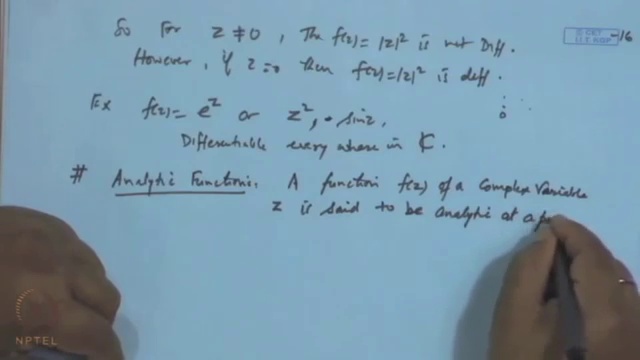 So For z ≠ 0, The f(z) = |z|² is not Diff.
However, if z = 0 then f(z) = |z|² is diff.
Ex f(z) = e^z or z², sin z,
Differentiable every where in ℂ.
# Analytic Functions. A function f(z) of a Complex Variable
z is said to be analytic at a
-16
NPTEL